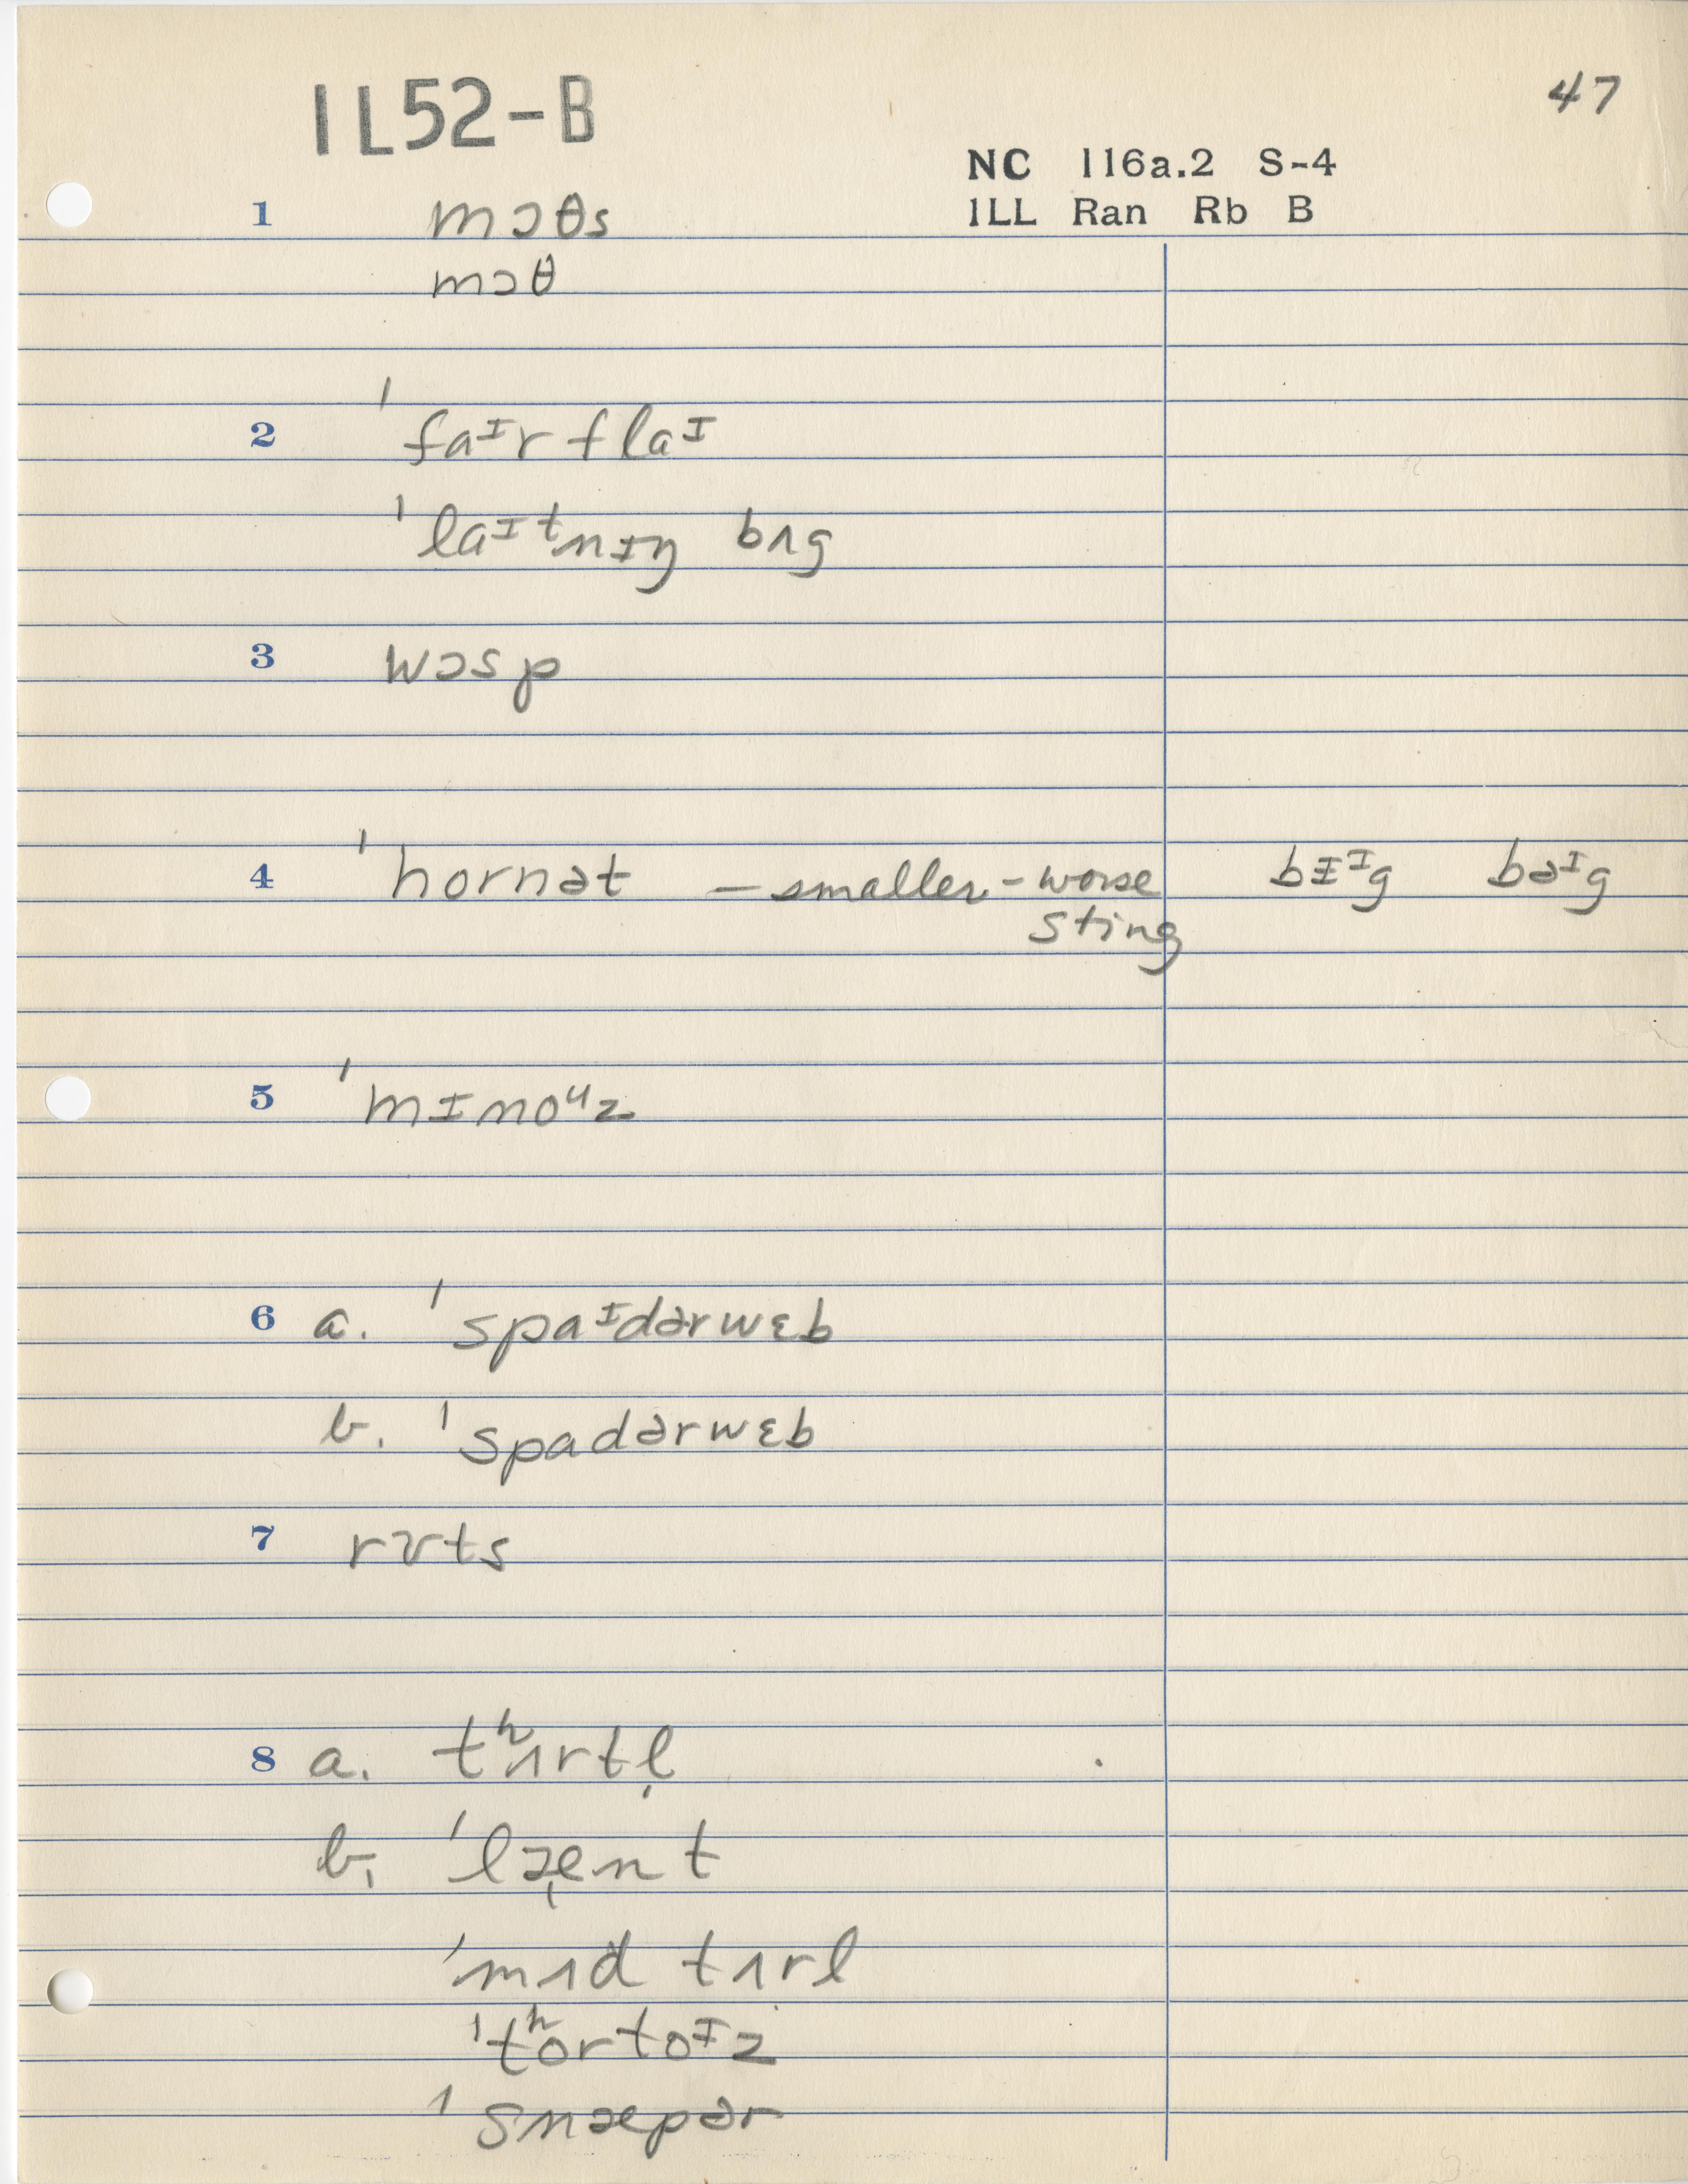 1L52-B
47
NC 116a.2 S-4
1LL Ran Rb B
1 mɔθs
mɔθ
2 ˈfaᴵrflaᴵ
ˈlaᴵᵗnɪŋ bʌg
3 wɔsp
4 ˈhornət — smaller - worse bɪᴵg bəᴵg
sting
5 ˈmɪnoᵘz
6 a. ˈspaᴵdərwɛb
b. ˈspadərwɛb
7 rʊts
8 a. tʰʌrtl̩
b. ˈlæ̩nt
ˈmʌd tʌrl
ˈtʰortoᴵz
ˈsnæpər